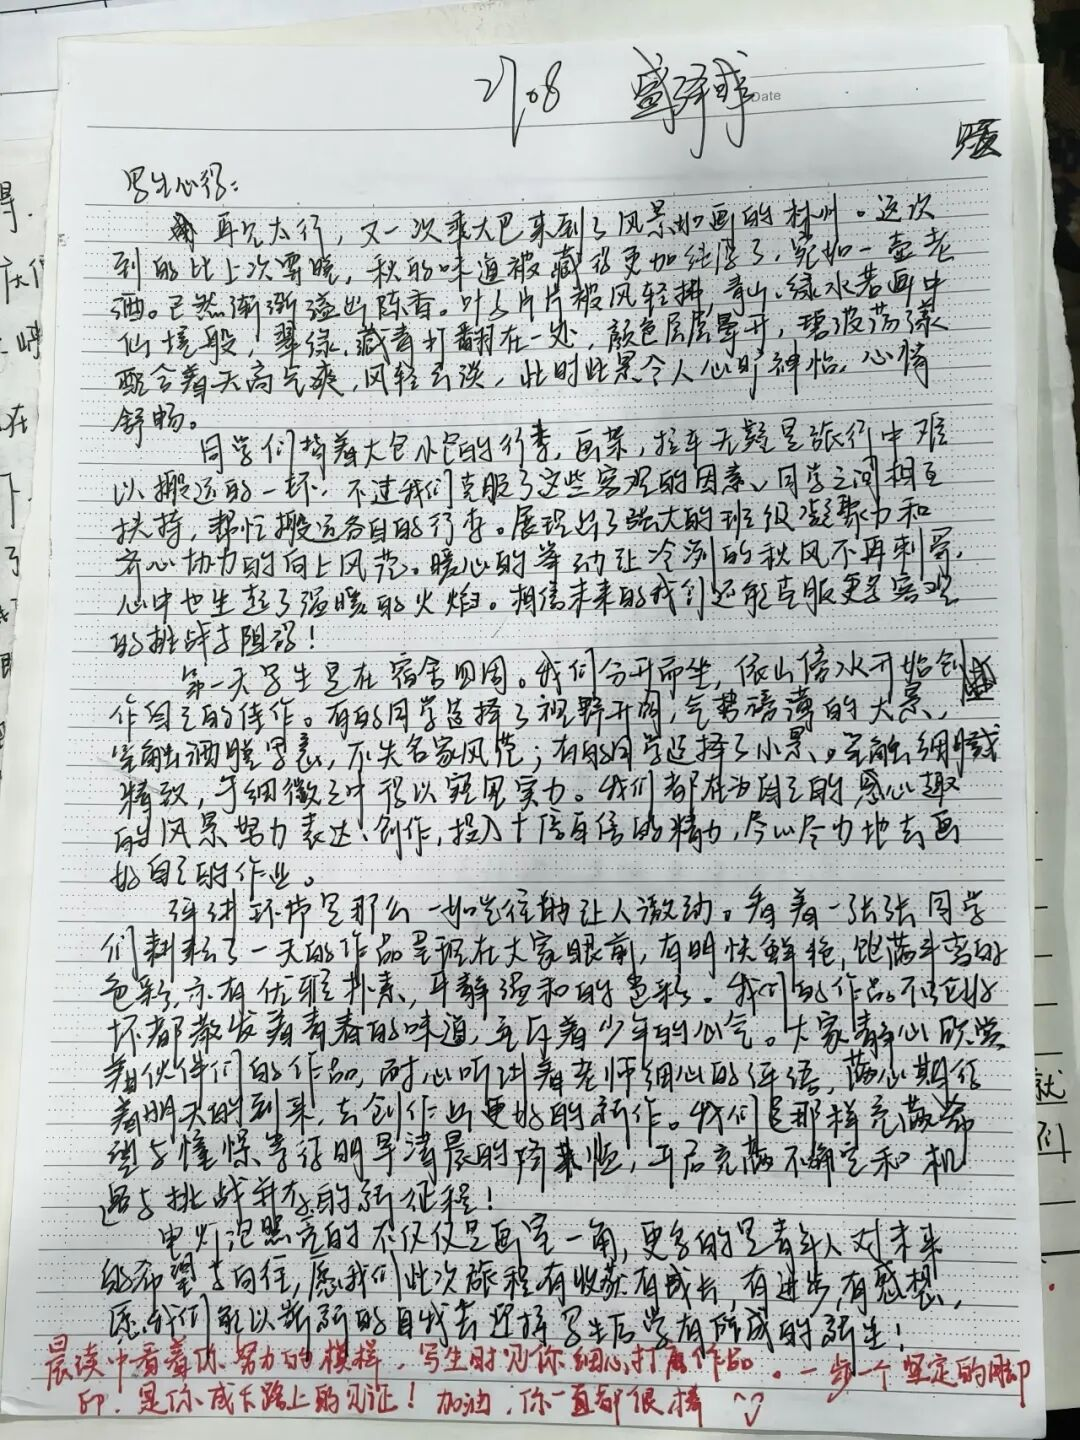 2708 盛泽
Date
写生心得：
再见太行，又一次乘大巴来到了风景如画的林州。这次
到的比上次要晚，秋的味道被藏得更加纯厚了，宛如一壶老
酒。已然渐渐溢出陈香。叶子片片被风轻拂，青山、绿水若画中
仙境般，翠绿、藏青打翻在一处，颜色层层晕开，碧波荡漾
配合着天高气爽，风轻云淡，此时此景令人心旷神怡，心情
舒畅。
同学们背着大包小包的行李，画架，拉车无疑是旅行中难
以搬运的一环，不过我们克服了这些客观的因素、同学之间相互
扶持，帮忙搬运各自的行李。展现出了强大的班级凝聚力和
齐心协力的向上风范。暖心的举动让冷冽的秋风不再刺骨，
心中也生起了温暖的火焰。相信未来的我们还能克服更多客观
的挑战与阻碍！
第一天写生是在宿舍四周。我们分开而坐，依山傍水开始创
作自己的佳作。有的同学选择了视野开阔，气势磅薄的大景，
笔触洒脱写意，不失名家风范；有的同学选择了小景。笔触细腻
精致，于细微之中得以窥见实力。我们都在为自己的感兴趣
的风景努力表达、创作，投入十倍百倍的精力，尽心尽力地去画
好自己的作业。
评讲环节是那么一如既往地让人激动。看着一张张同学
们耕耘了一天的作品呈现在大家眼前，有明快鲜艳，饱满丰富的
色彩，亦有优雅朴素，平静温和的色彩。我们的作品不论好
坏都散发着青春的味道，互斥着少年的心气。大家静心欣赏
着伙伴们的作品，耐心听讲着老师细心的评语，满心期待
着明天的到来，去创作出更好的新作。我们是那样充满希
望与憧憬，等待明早清晨的降临，开启充满不确定和机
遇与挑战并存的新征程！
电灯泡照亮的不仅仅是画室一角，更多的是青年人对未来
的希望与向往，愿我们此次旅程有收获有成长，有进步，有感想，
愿我们能以崭新的自我去迎接写生后学有所成的新生！
晨读中看着你努力的模样，写生时见你细心打磨作品。一步一个坚定的脚
印，是你成长路上的见证！加油，你一直都很棒